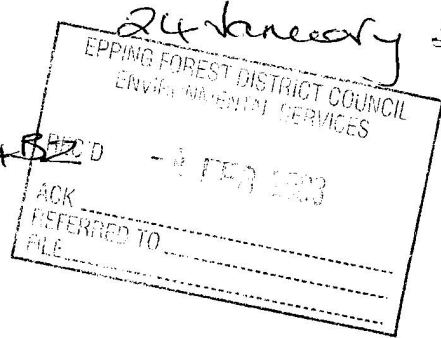 24 January
EPPING FOREST DISTRICT COUNCIL
ENVIRONMENTAL SERVICES
REC'D - FEB 2003
ACK
REFERRED TO
FILE